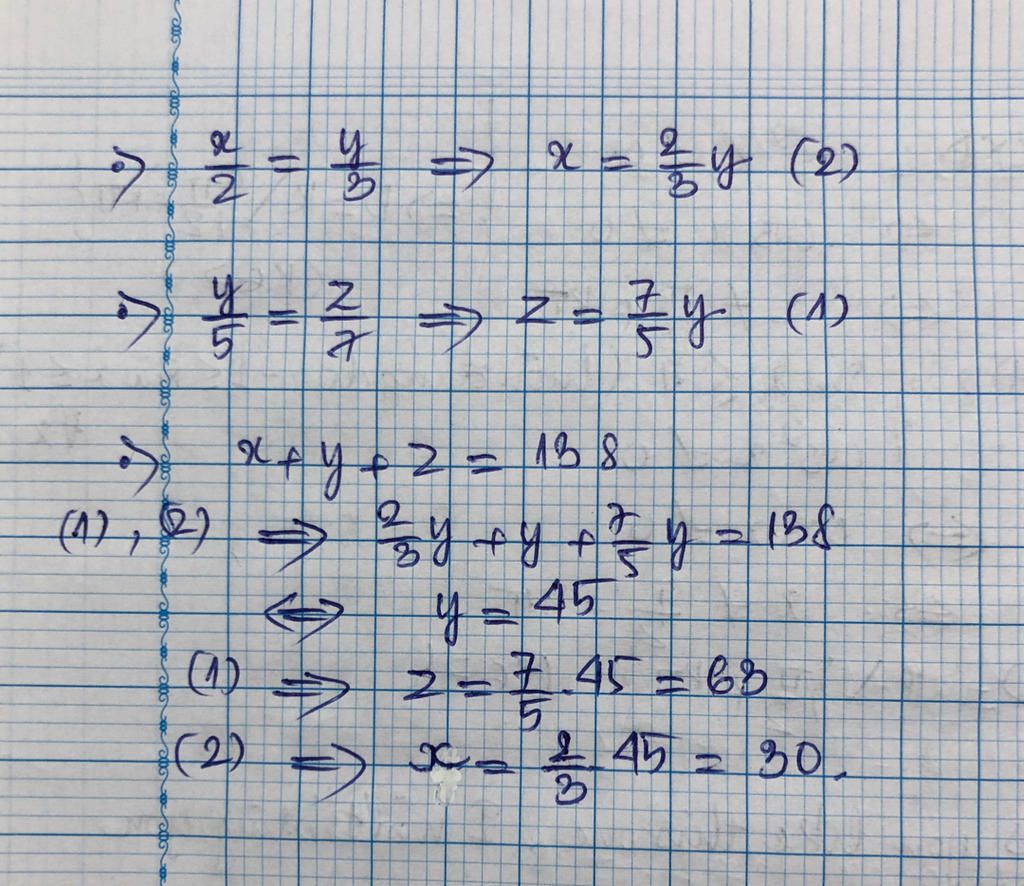 •) x/2 = y/3 => x = 2/3 y (2)
•) y/5 = z/7 => z = 7/5 y (1)
•) x + y + z = 138
(1), (2) => 2/3 y + y + 7/5 y = 138
<=> y = 45
(1) => z = 7/5 . 45 = 63
(2) => x = 2/3 . 45 = 30.